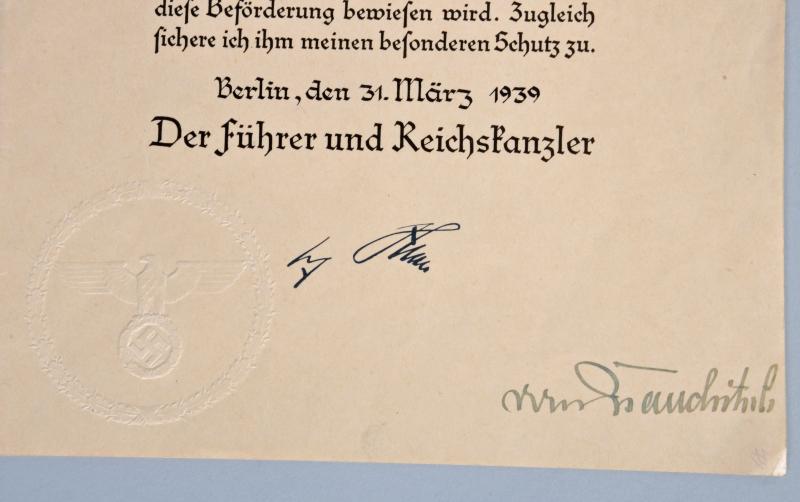 dieſe Beförderung bewieſen wird. Zugleich
ſichere ich ihm meinen beſonderen Schutz zu.
Berlin, den 31. März 1939
Der Führer und Reichskanzler
von Brauchitsch